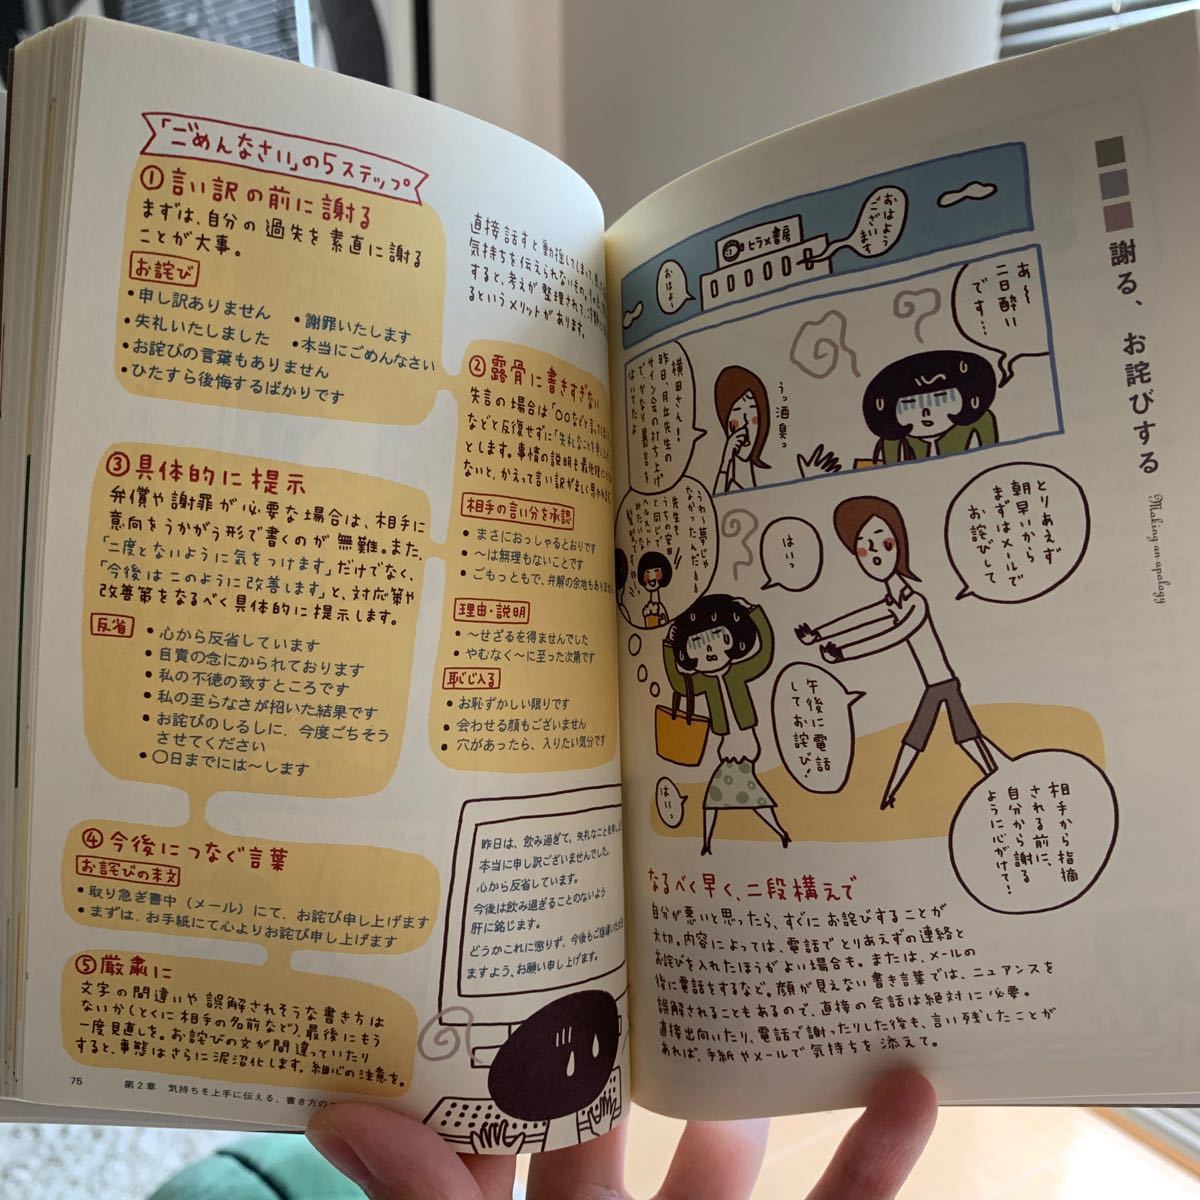 謝る、お詫びする
Making an apology
ヒラメ書房
おはよう
ございます
おはよ!
あ〜
二日酔い
です…
うっ酒臭っ
横田さん!
昨日、月丘先生の
サイン会の打ち上げ
で、かなり暴言を
はいてたよ
うわ〜夢じゃ
なかったんだ
先生を
うちの実田
と同じで
ヘルメット
みたいな
とりあえず
朝早いから
まずはメールで
お詫びして
はいっ
午後に電話
してお詫び!
はいっ
相手から指摘
される前に、
自分から謝る
ように心がけて!
なるべく早く、二段構えで
自分が悪いと思ったら、すぐにお詫びすることが
大切。内容によっては、電話でとりあえずの連絡と
お詫びを入れたほうがよい場合も。または、メールの
後に電話をするなど。顔が見えない書き言葉では、ニュアンスを
誤解されることもあるので、直接の会話は絶対に必要。
直接出向いたり、電話で謝ったりした後も、言い残したことが
あれば、手紙やメールで気持ちを添えて。
直接話すと動揺してしまって
気持ちを伝えられないもの。
すると、考えが整理されて、冷静に
るというメリットがあります。
「ごめんなさい」の5ステップ
①言い訳の前に謝る
まずは、自分の過失を素直に謝る
ことが大事。
お詫び
・申し訳ありません
・失礼いたしました
・お詫びの言葉もありません
・ひたすら後悔するばかりです
・謝罪いたします
・本当にごめんなさい
②露骨に書きすぎない
失言の場合は「○○などと言ってしまい
などと反復せずに「失礼なことを申し
とします。事情の説明も最低限に
ないと、かえって言い訳がましく思われ
相手の言い分を承認
・まさにおっしゃるとおりです
・〜は無理もないことです
・ごもっともで、弁解の余地もありま
理由・説明
・〜せざるを得ませんでした
・やむなく〜に至った次第です
恥じ入る
・お恥ずかしい限りです
・会わせる顔もございません
・穴があったら、入りたい気分です
③具体的に提示
弁償や謝罪が必要な場合は、相手に
意向をうかがう形で書くのが無難。また、
「二度とないように気をつけます」だけでなく、
「今後はこのように改善します」と、対応策や
改善策をなるべく具体的に提示します。
反省
・心から反省しています
・自責の念にかられております
・私の不徳の致すところです
・私の至らなさが招いた結果です
・お詫びのしるしに、今度ごちそう
させてください
・○日までには〜します
④今後につなぐ言葉
お詫びの末文
・取り急ぎ書中(メール)にて、お詫び申し上げます
・まずは、お手紙にて心よりお詫び申し上げます
⑤厳粛に
文字の間違いや誤解されそうな書き方は
ないか(とくに相手の名前など)、最後にもう
一度見直しを。お詫びの文が間違っていたり
すると、事態はさらに泥沼化します。細心の注意を。
昨日は、飲み過ぎて、失礼なことを申し
本当に申し訳ございませんでした。
心から反省しています。
今後は飲み過ぎることのないよう
肝に銘じます。
どうかこれに懲りず、今後もご指導いただ
ますよう、お願い申し上げます。
75
第2章 気持ちを上手に伝える、書き方の